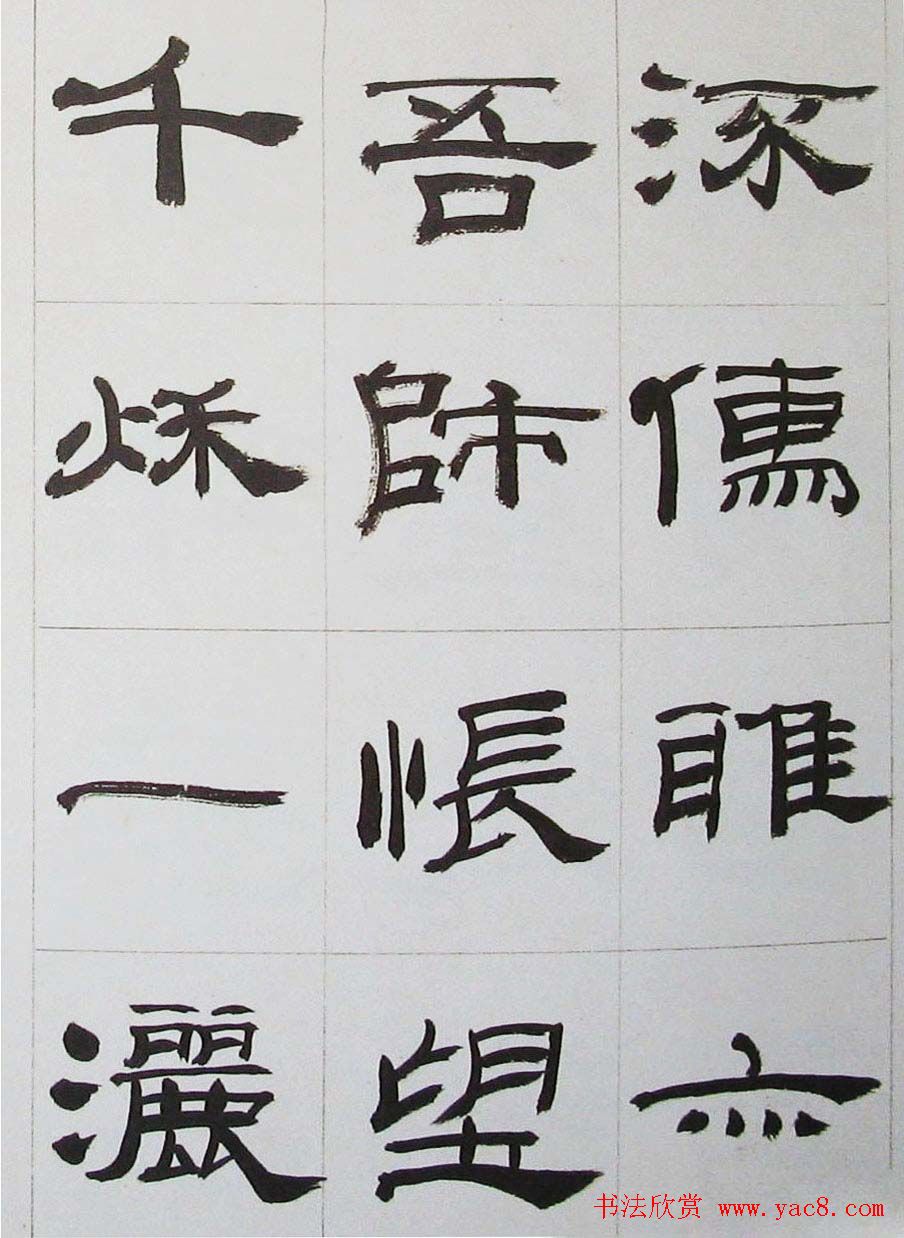 流儒雅亦
吾師悵望
千秋一灑
书法欣赏 www.yac8.com